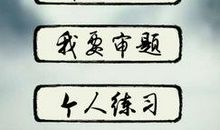 我要审题
个人练习